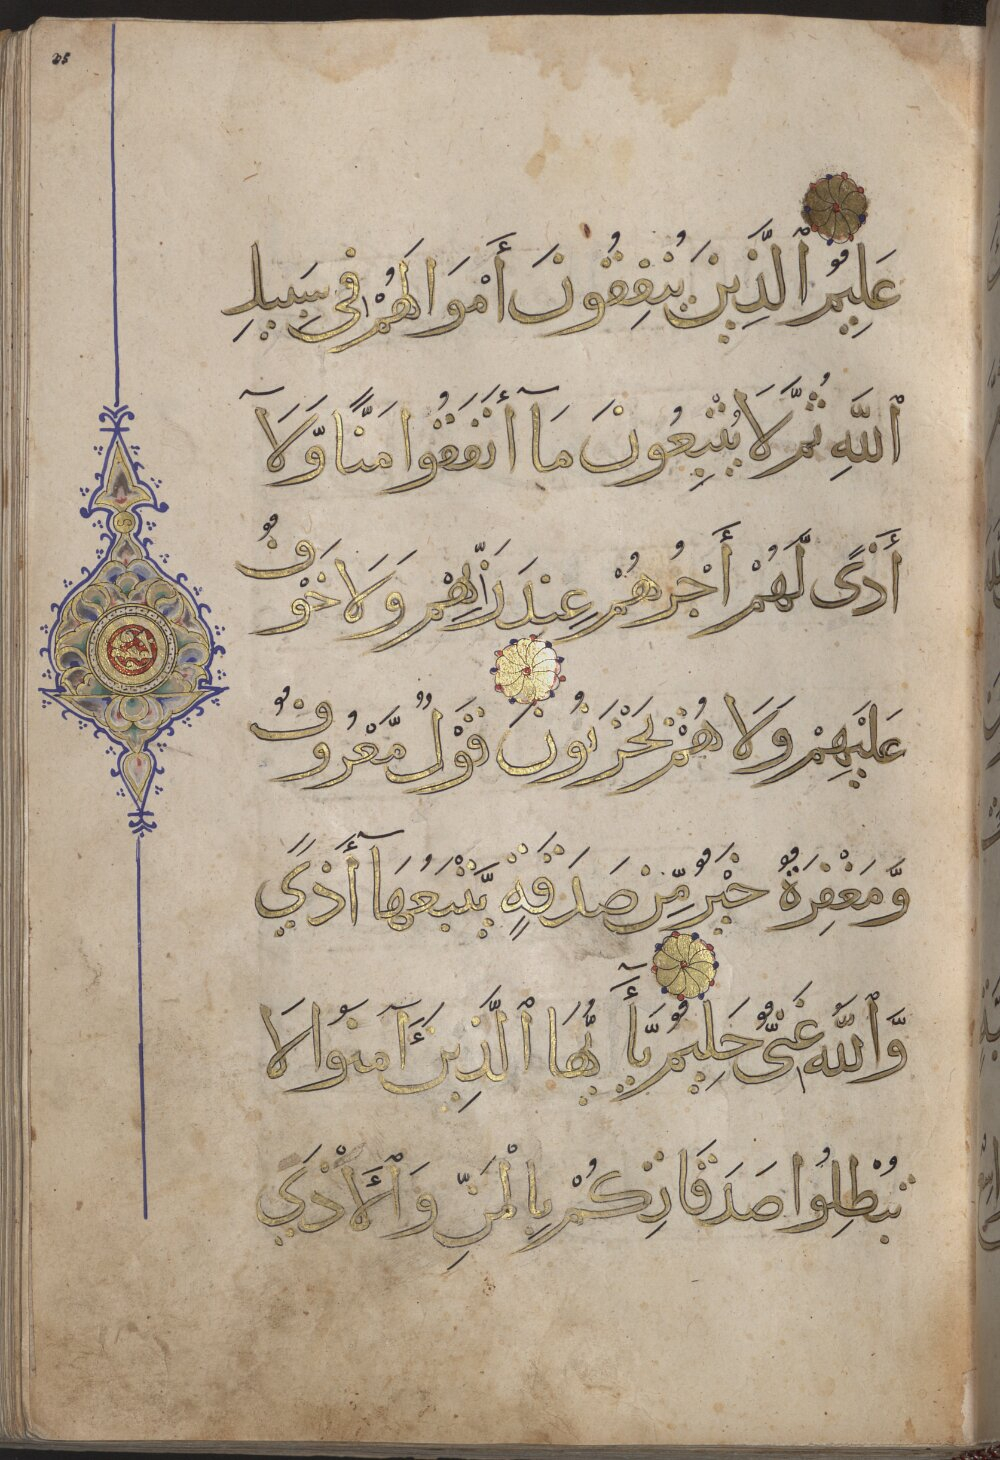 عَلِيمٌ ٱلَّذِينَ يُنفِقُونَ أَمْوَالَهُمْ فِي سَبِيلِ
ٱللَّهِ ثُمَّ لَا يُتْبِعُونَ مَآ أَنفَقُوا مَنًّا وَّلَآ
أَذًى لَّهُمْ أَجْرُهُمْ عِندَ رَبِّهِمْ وَلَا خَوْفٌ
عَلَيْهِمْ وَلَا هُمْ يَحْزَنُونَ قَوْلٌ مَّعْرُوفٌ
وَّمَغْفِرَةٌ خَيْرٌ مِّن صَدَقَةٍ يَّتْبَعُهَآ أَذًى
وَّٱللَّهُ غَنِيٌّ حَلِيمٌ يَّآأَيُّهَا ٱلَّذِينَ ءَامَنُوا لَا
تُبْطِلُوا صَدَقَاتِكُمْ بِالْمَنِّ وَٱلْأَذَى